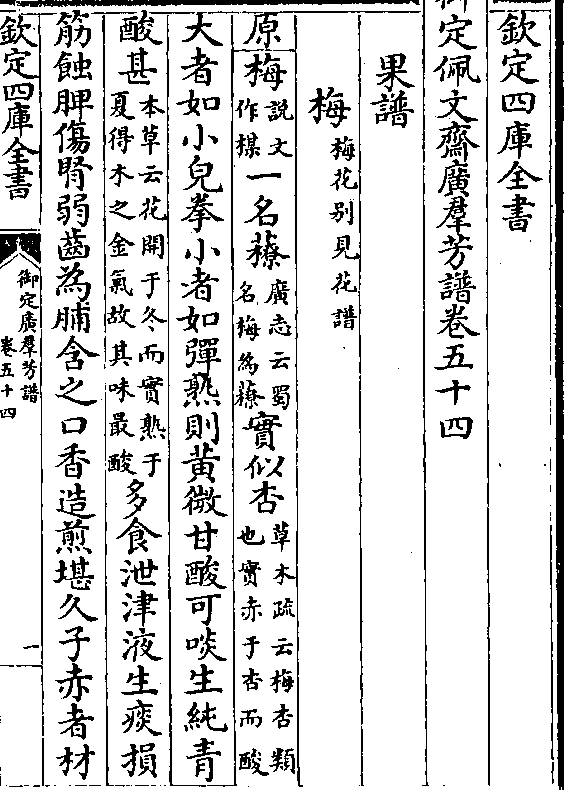 欽定四庫全書
御定佩文齋廣羣芳譜卷五十四
果譜
梅梅花别見花譜
原梅説文作楳一名䕩廣志云蜀名梅為䕩實似杏草木疏云梅杏類也實赤于杏而酸
大者如小兒拳小者如彈熟則黄微甘酸可啖生純青
酸甚本草云花開于冬而實熟于夏得木之金氣故其味最酸多食泄津液生痰損
筋蝕脾傷腎弱齒為脯含之口香造煎堪久子赤者材
欽定四庫全書
御定廣羣芳譜
卷五十四
一